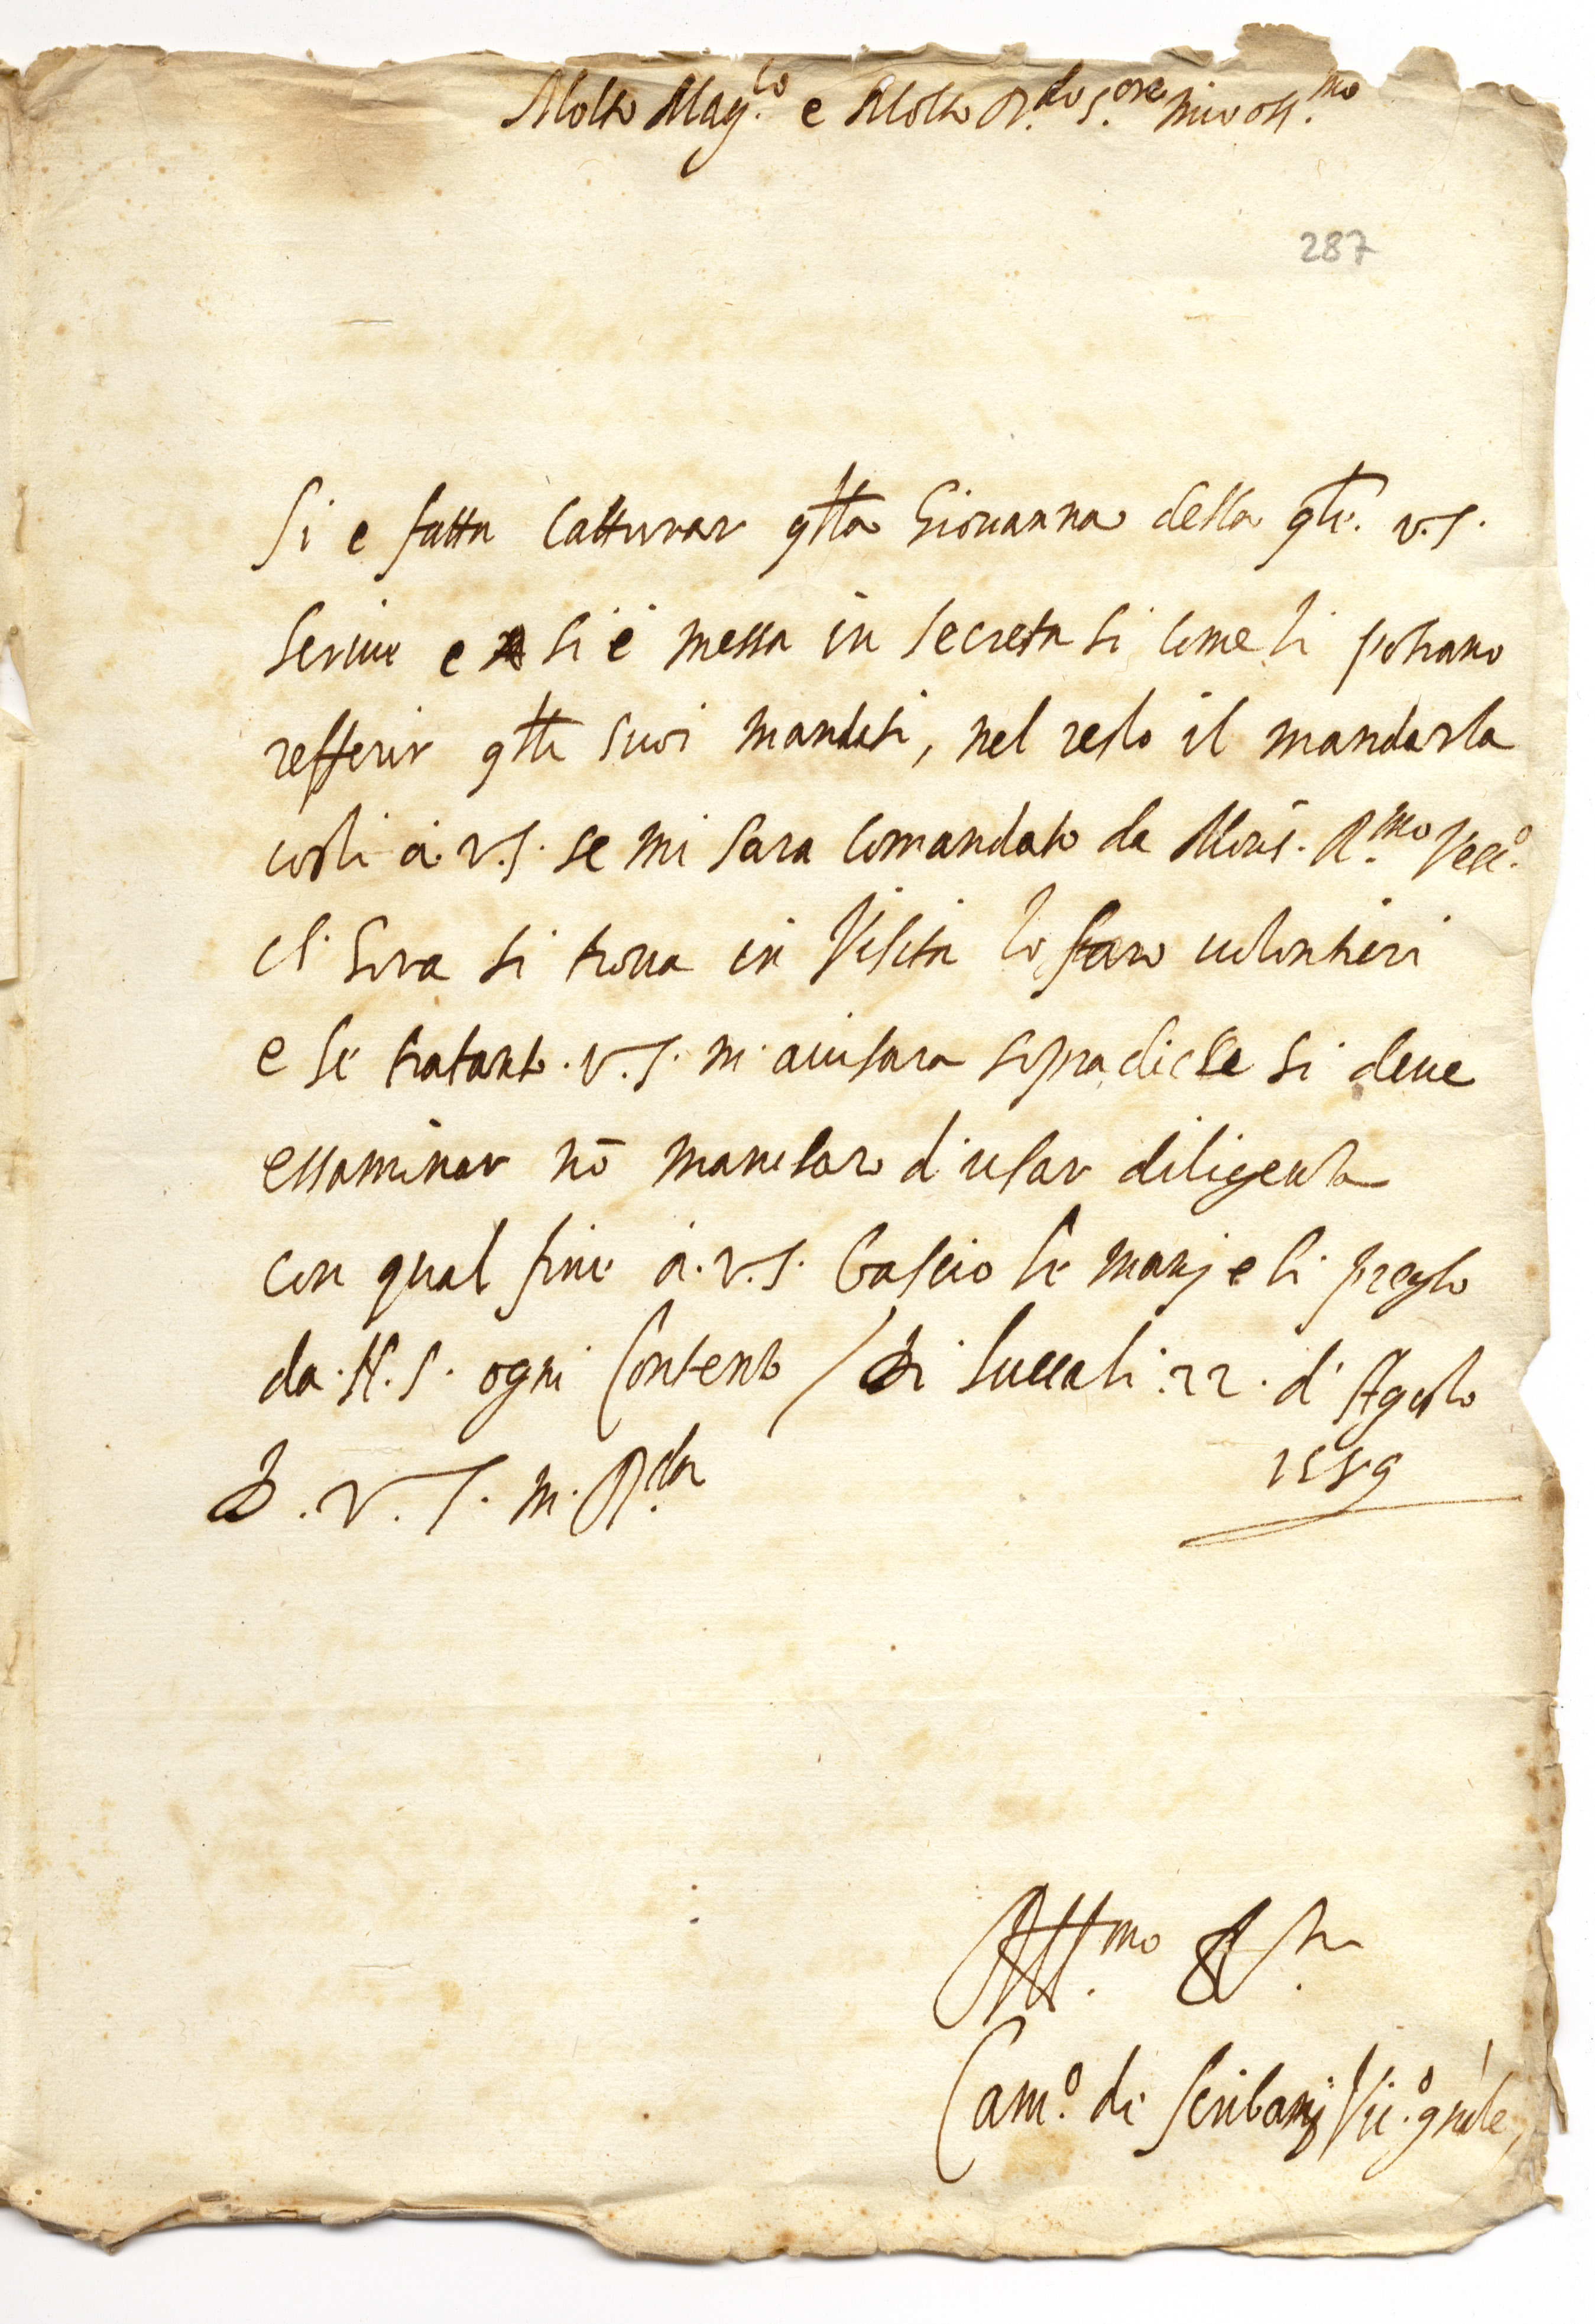 Molto Mag.co e Molto R.do S.ore mio oss.mo
287
Si e fatta Catturar q̃lla Giouanna della q̃le. v.s.
scriue e si è messa in secreta si come li potrano
refferir q̃lli suoi mandati, nel resto il mandarla
costi à v.s. se mi sara comandato da Mons. R.mo Vesc.o
ch'hora si troua in Visita lo faro uolontieri
e se tratanto v.s. m'auisara sopra di che si deue
essaminar nõ mancharo d'usar diligenta
con qual fine à v.s. bascio le manj e li prego
da N.S. ogni Contento / Di 22. d'Agosto
D. v. S. m. R.da
1559
Aff.mo
Cam.o di Scribanj Vic.o gnãle